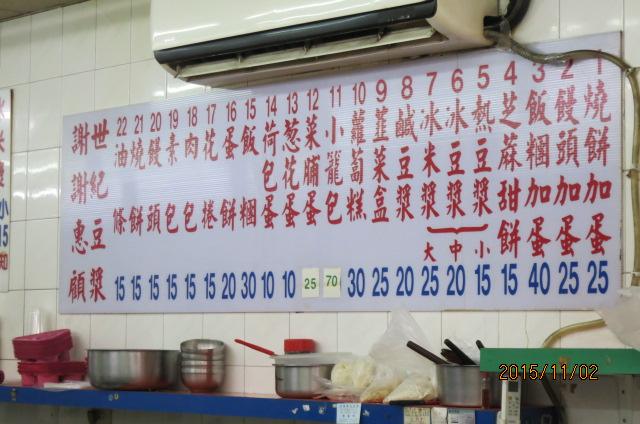 1 燒餅加蛋 25
2 饅頭加蛋 25
3 飯糰加蛋 40
4 芝蔴甜餅 15
5 熱豆漿 小 15
6 冰豆漿 中 20
7 冰米漿 大 25
8 鹹豆漿 20
9 韮菜盒 25
10 蘿蔔糕 30
11 小籠包 70
12 菜脯蛋 25
13 葱花蛋 10
14 荷包蛋 10
15 飯糰 30
16 蛋餅 20
17 花捲 15
18 肉包 15
19 素包 15
20 饅頭 15
21 燒餅 15
22 油條 15
世紀豆漿
謝謝惠顧
小
15
2015/11/02